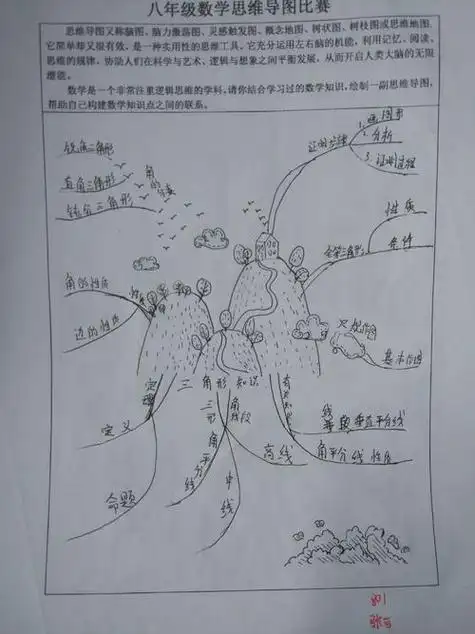 八年级数学思维导图比赛
思维导图又称脑图、脑力激荡图、灵感触发图、概念地图、树状图、树枝图或思维地图,
它简单却又很有效,是一种实用性的思维工具。它充分运用左右脑的机能,利用记忆、阅读、
思维的规律,协助人们在科学与艺术、逻辑与想象之间平衡发展,从而开启人类大脑的无限
潜能。
数学是一个非常注重逻辑思维的学科,请你结合学习过的数学知识,绘制一副思维导图,
帮助自己构建数学知识点之间的联系。
1. 画图形
证明步骤
2. 分析
3. 证明过程
锐角三角形
直角三角形
钝角三角形
角的分类
性质
全等三角形
条件
角的性质
性质
边的性质
尺规作图
基本作图
定理
三角形知识
有关知识
定义
命题
三角形
角平分线
角线段
中线
高线
线段垂直平分线
角平分线性质